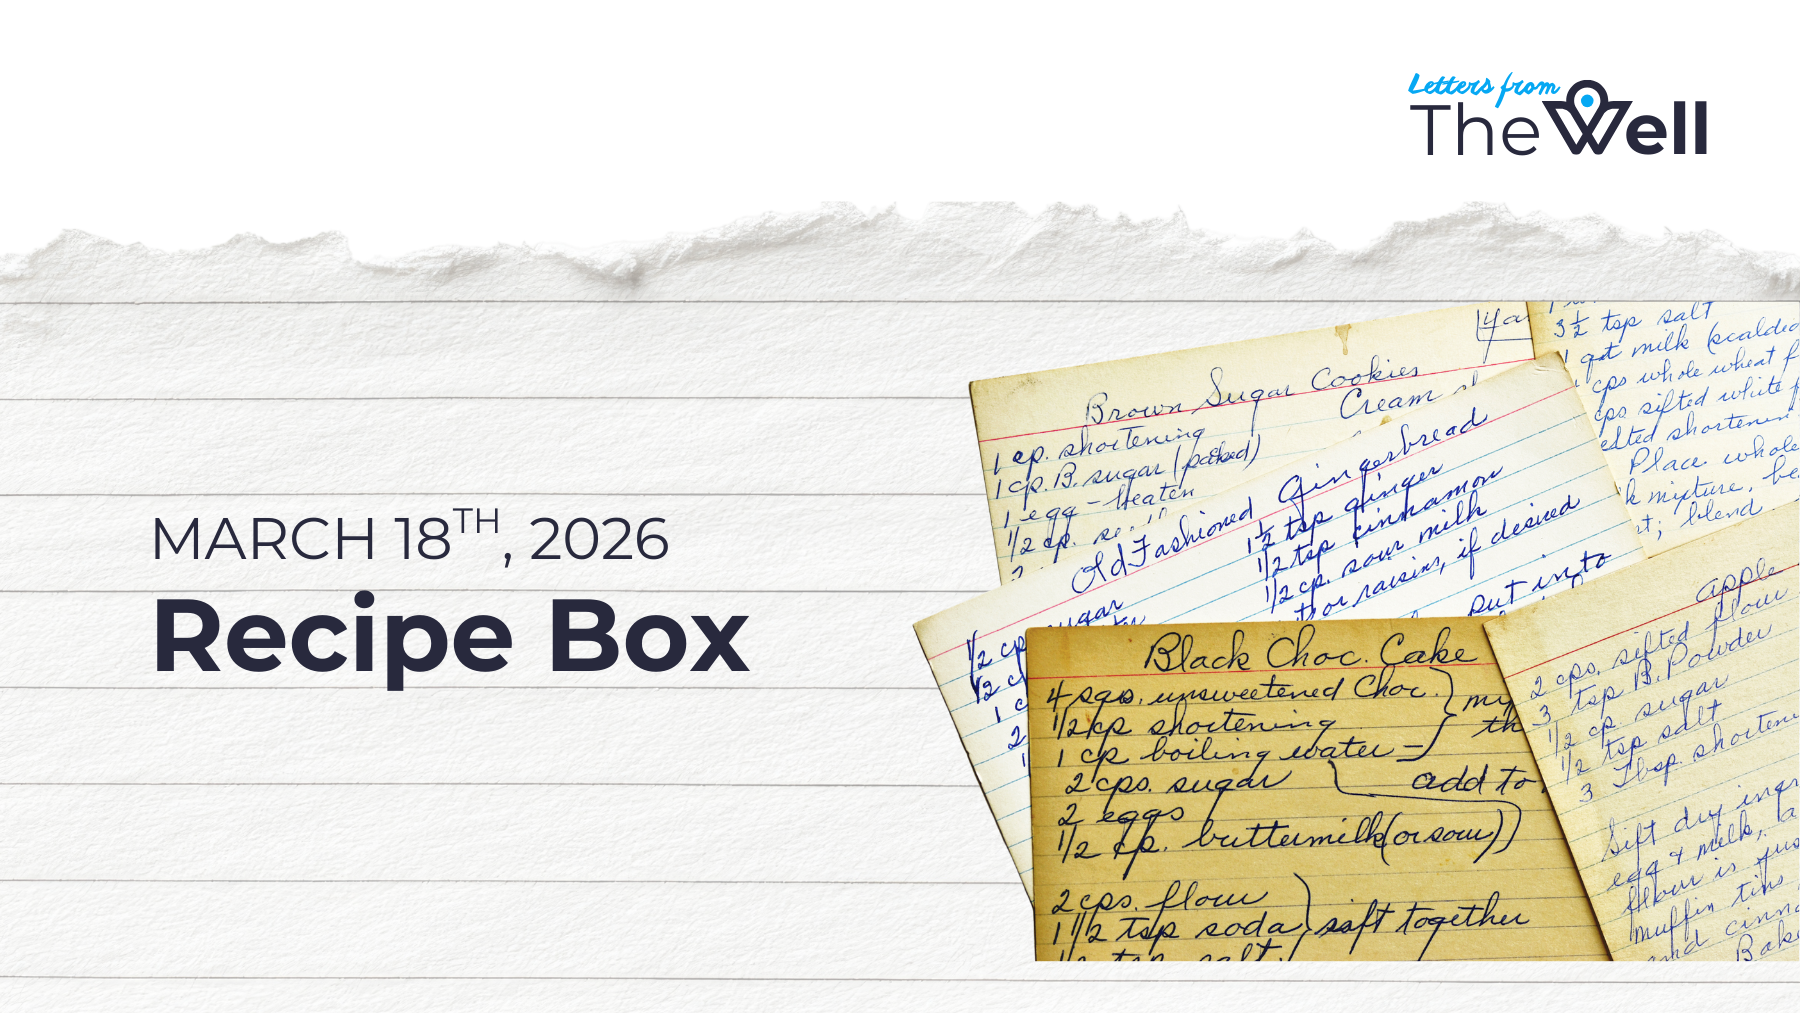 Letters from
The Well
MARCH 18TH, 2026
Recipe Box
Brown Sugar Cookies
Cream
1 cp. shortening
1 cp. B. sugar (packed)
1 egg - beaten
1/2 cp.
3 1/2 tsp salt
1 qt milk (scalded
cps whole wheat f
cps sifted white f
elted shortenin
Place whole
k mixture, be
t; blend
Old Fashioned Gingerbread
1/2 cp sugar
1/2 c
1 c
2
1 1/2 tsp ginger
1/2 tsp cinnamon
1/2 cp. sour milk
or raisins, if desired
put into
Black Choc. Cake
4 sqs. unsweetened Choc.
1/2 cp shortening
1 cp boiling water
2 cps. sugar
add to
2 eggs
1/2 cp. buttermilk (or sour)
2 cps. flour
1 1/2 tsp soda
sift together
1/2 tsp salt
apple
2 cps. sifted flour
3 tsp B. Powder
1/2 cp sugar
1/2 tsp salt
3 Tbsp. shorteni
Sift dry ingr
egg & milk,
flour is jus
muffin tins
and cinna
Bake